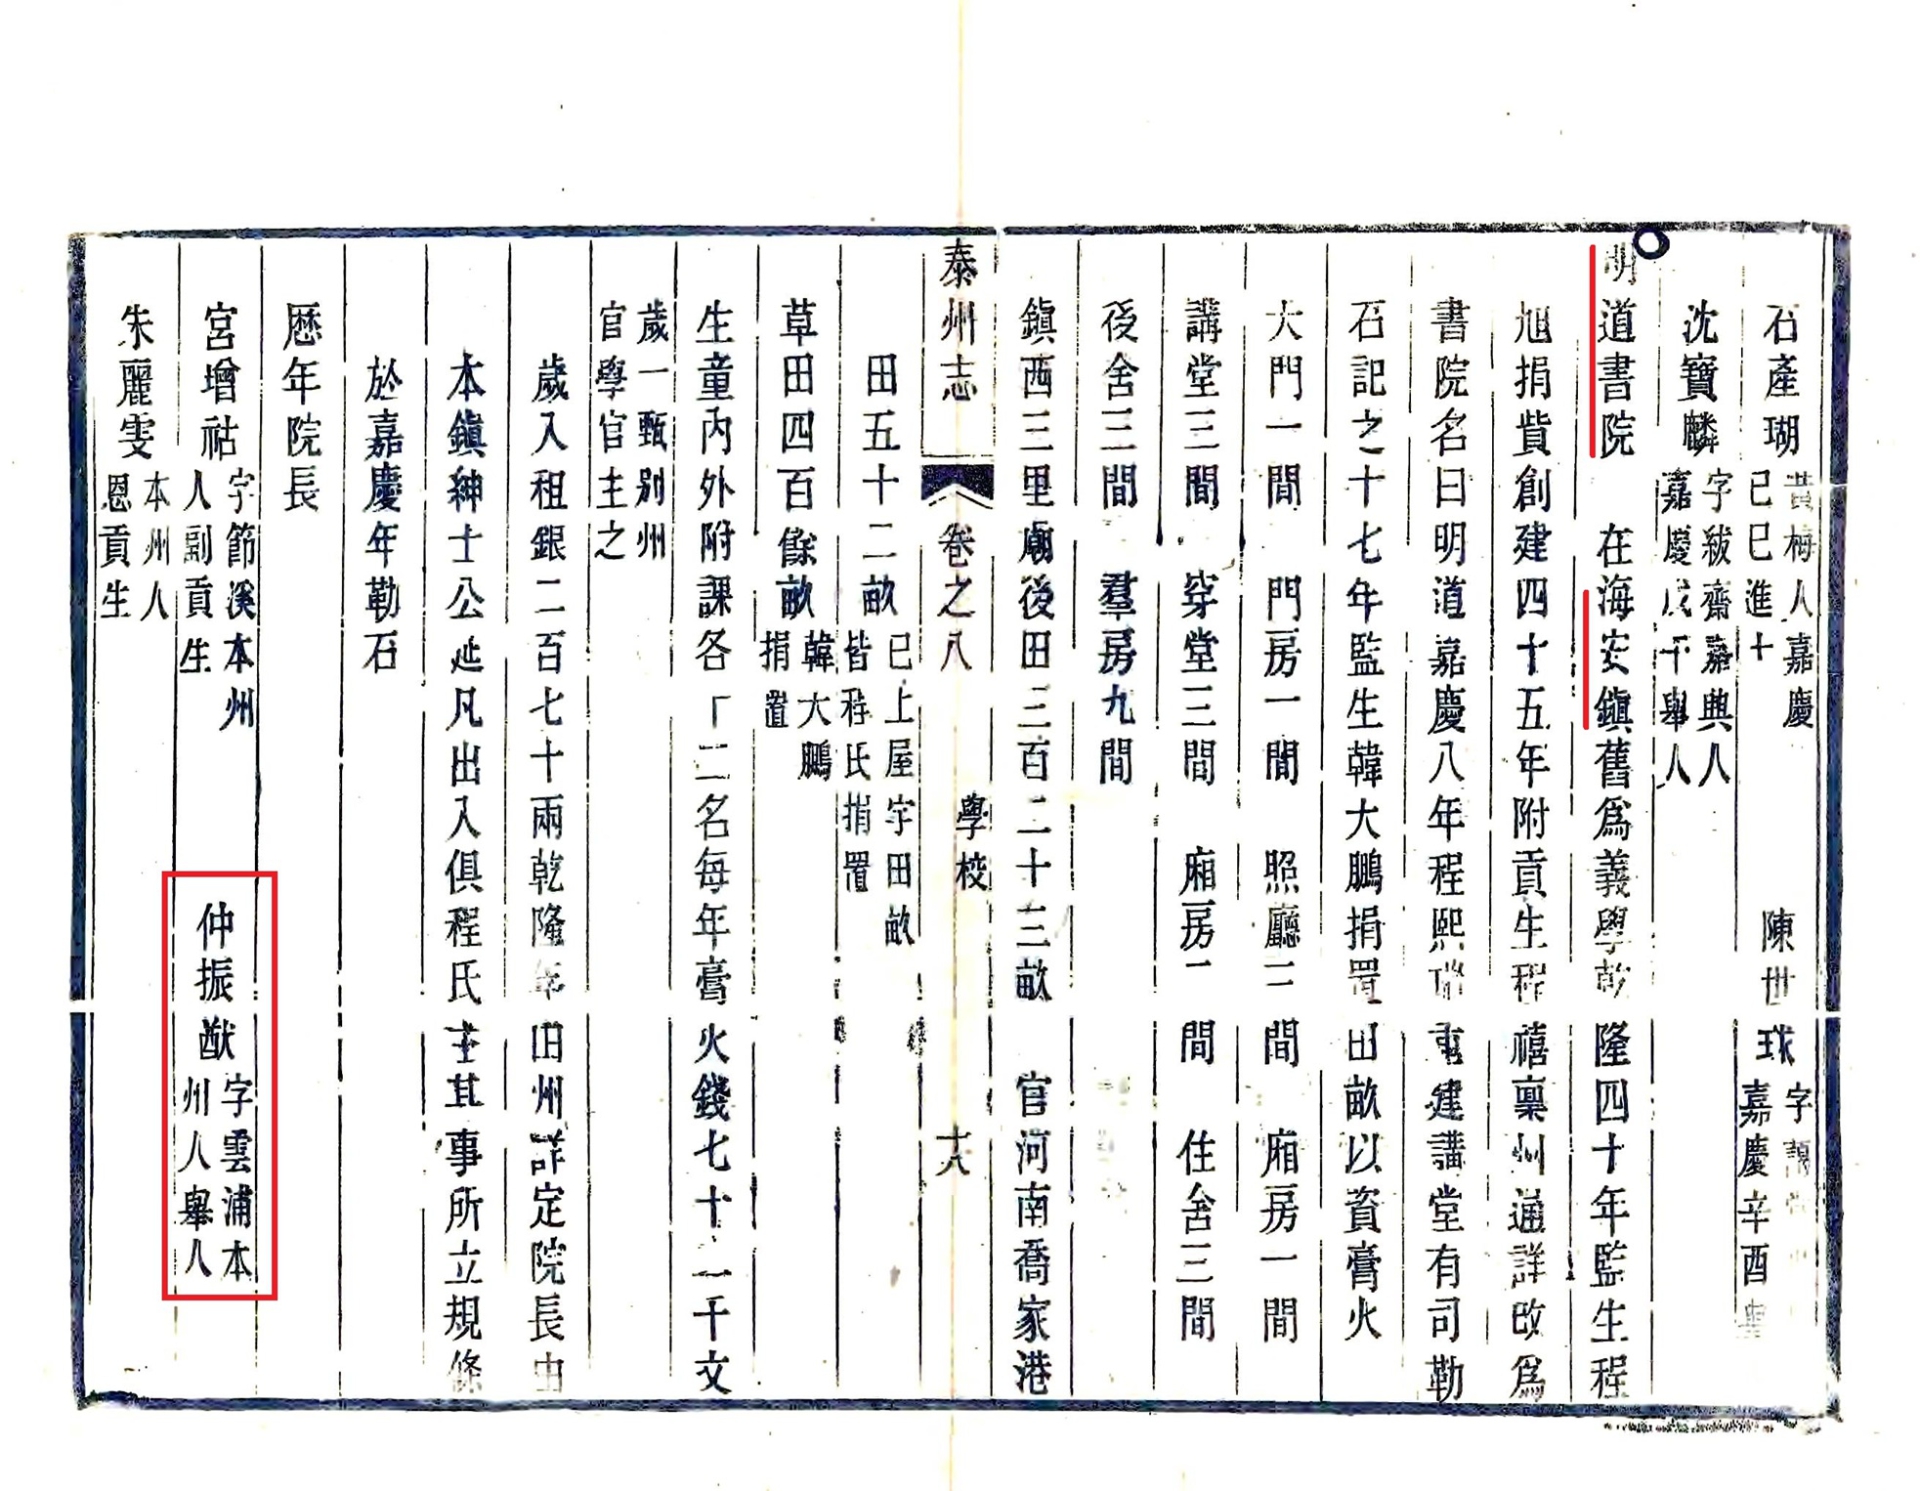 石產瑚黃梅人嘉慶己巳進士　陳世球字　嘉慶辛酉
沈寶麟字紱齋嘉興人嘉慶戊午舉人
明道書院　在海安鎮舊爲義學乾隆四十年監生程
旭捐貲創建四十五年附貢生程禧稟州通詳改爲
書院名曰明道嘉慶八年程熙瑞重建講堂有司勒
石記之十七年監生韓大鵬捐置田畝以資膏火
大門一間　門房一間　照廳三間　廂房一間
講堂三間　穿堂三間　廂房二間　住舍三間
後舍三間　羣房九間
鎮西三里廟後田三百二十三畝　官河南喬家港
泰州志　卷之八　學校　十八
田五十二畝已上屋宇田畝皆程氏捐置
草田四百餘畝韓大鵬捐置
生童內外附課各十二名每年膏火錢七十二千文
歲一甄别州官學官主之
歲入租銀二百七十兩乾隆年田州詳定院長由
本鎮紳士公延凡出入俱程氏主其事所立規條
於嘉慶年勒石
歷年院長
宮增祜字節溪本州人副貢生　仲振猷字雲浦本州人舉人
朱麗雯本州人恩貢生